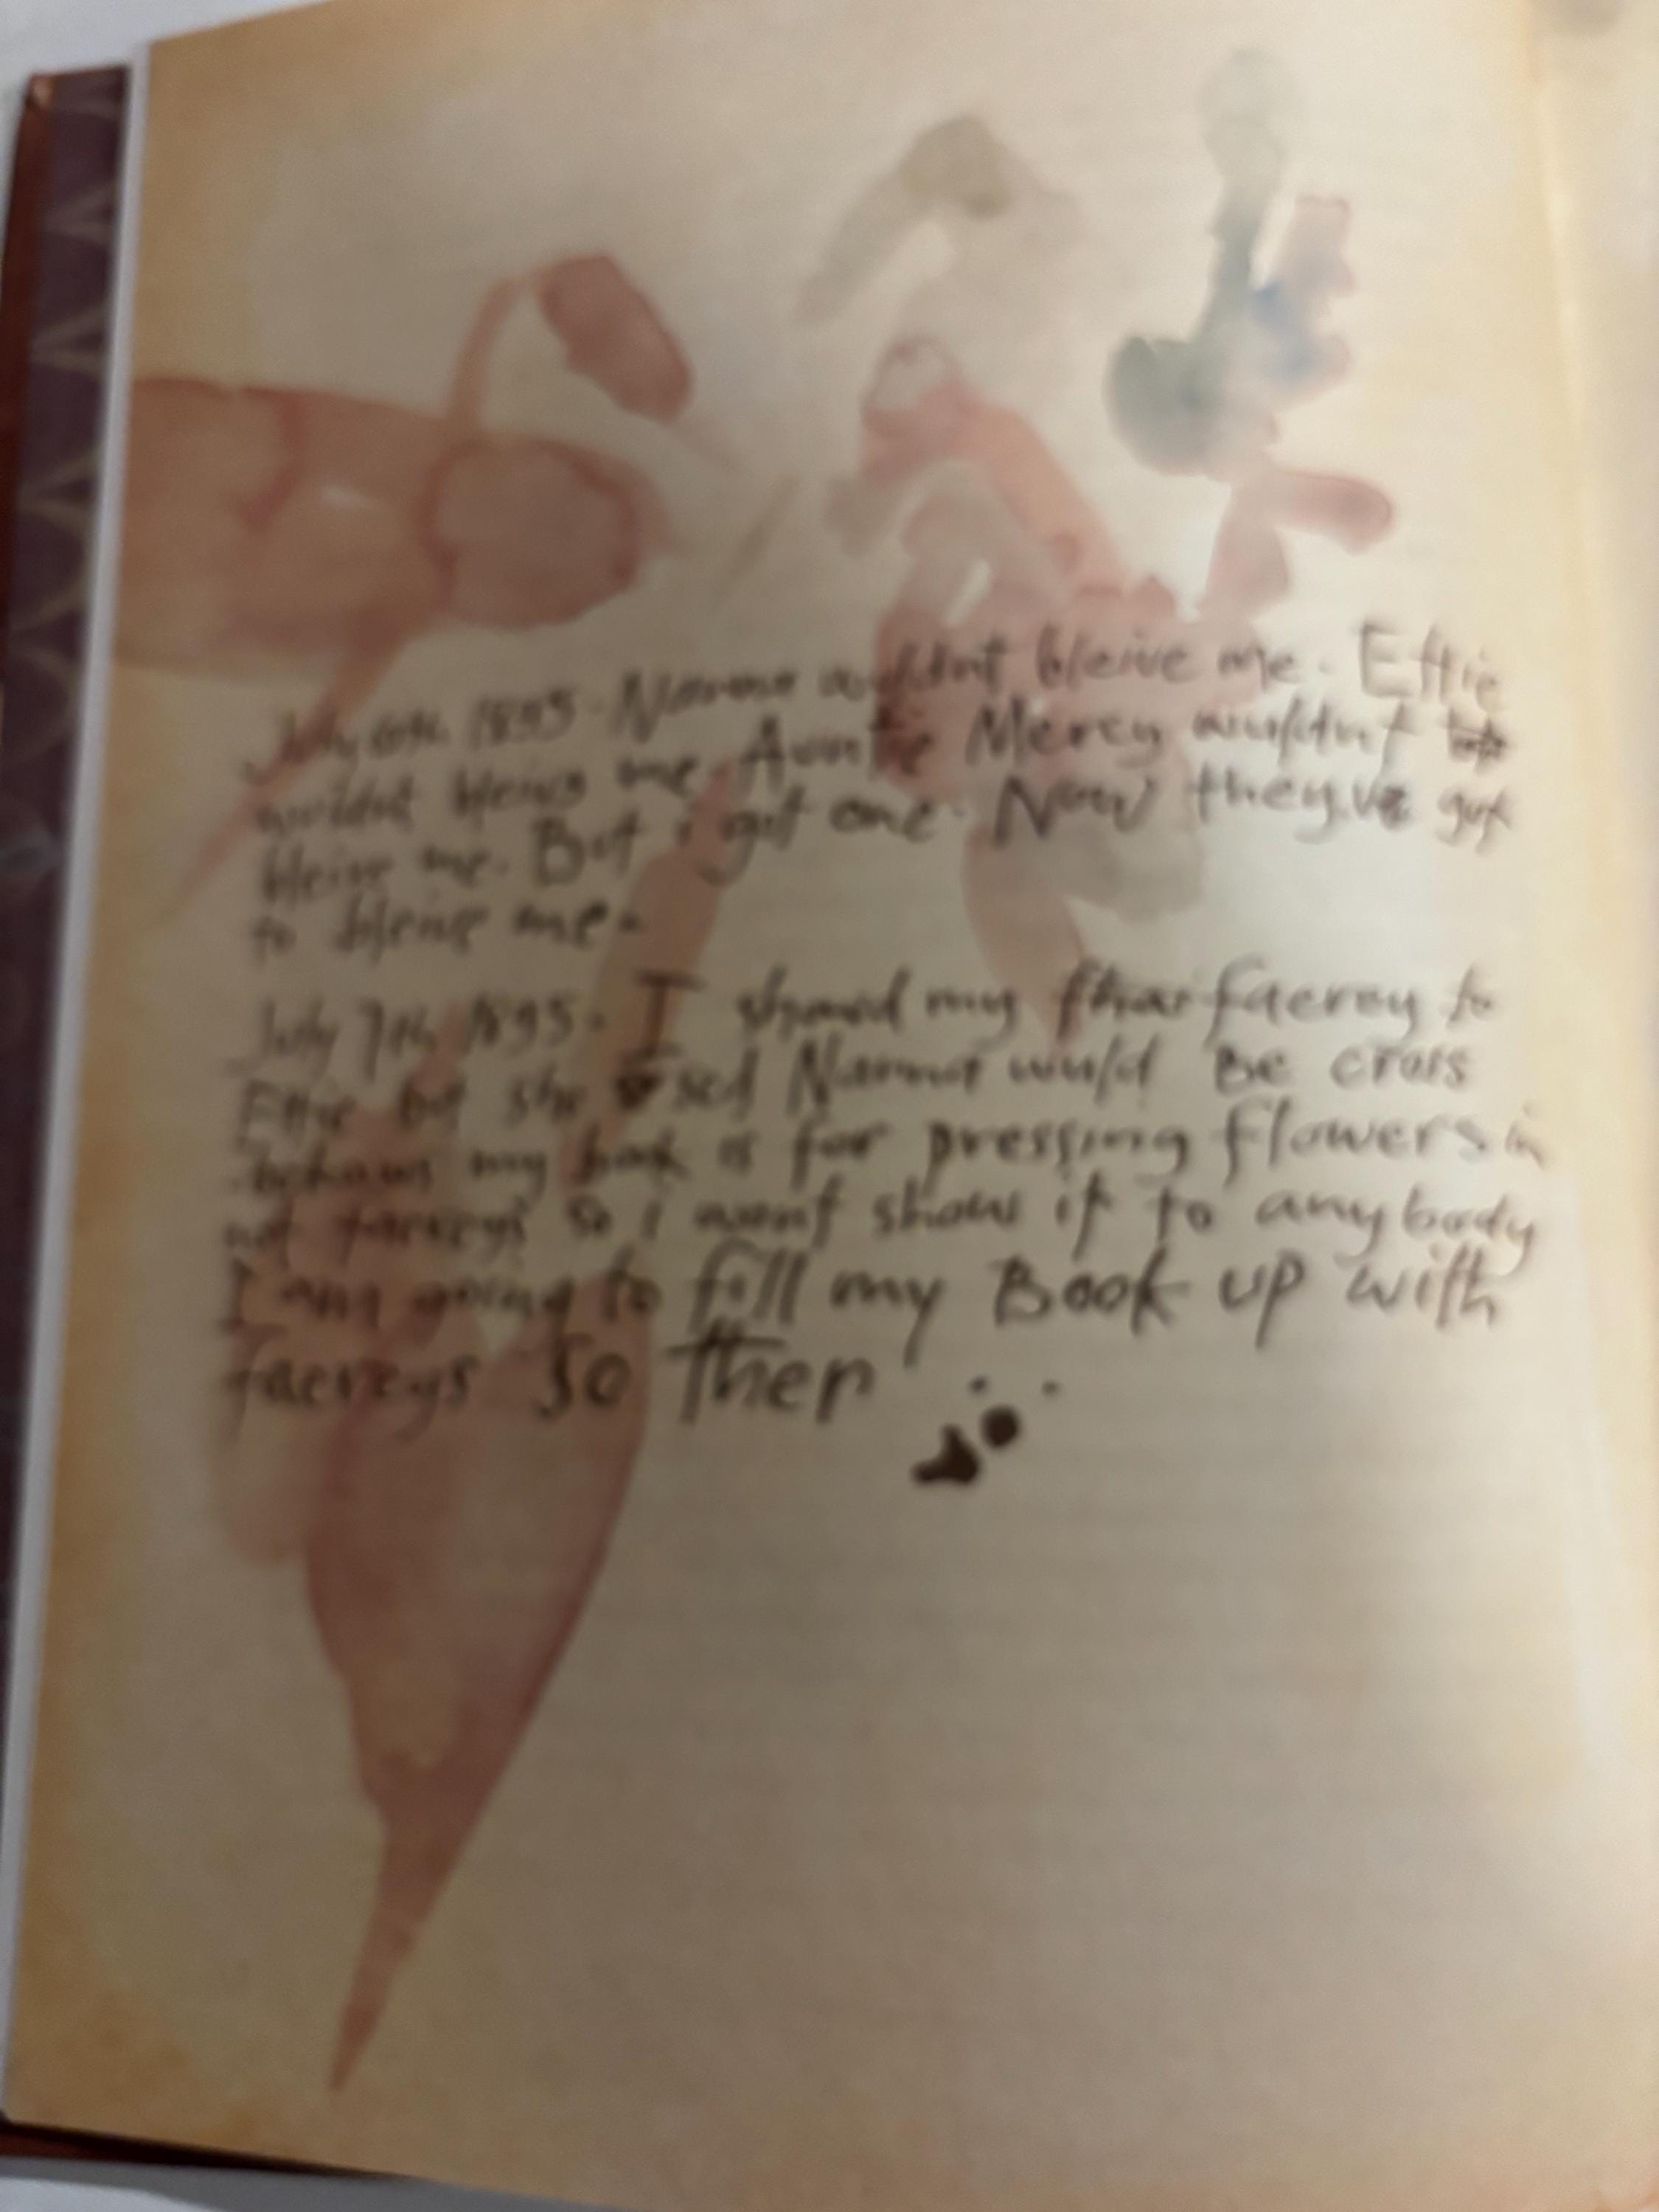 July 6th 1895. Nanna wuldnt bleive me. Effie
wuldnt bleive me. Auntie Mercy wuldnt
bleive me. But i got one. Now they.ve got
to bleive me.
July 7th 1895. I showd my faerey to
Effie but she sed Nanna wuld Be cross
my book is for pressing flowers in
not faereys so i wont show it to anybody
I am going to fill my Book up with
faereys So Ther